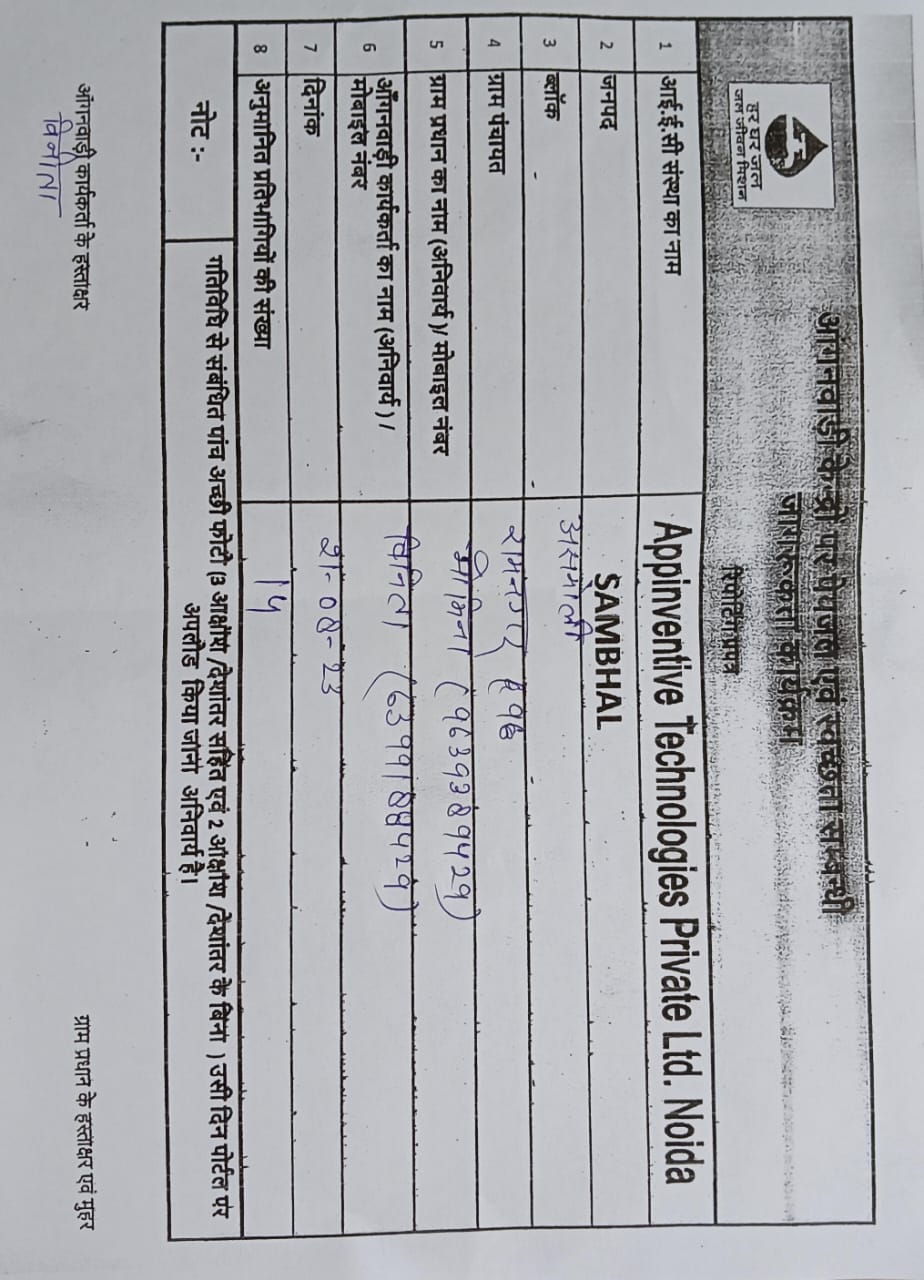 हर घर जल
जल जीवन मिशन
आंगनवाडी केन्द्रो पर पेयजल एवं स्वच्छता सम्बन्धी
जागरूकता कार्यक्रम
रिपोर्टिंग प्रपत्र
1 आई.ई.सी संस्था का नाम Appinventive Technologies Private Ltd. Noida
2 जनपद SAMBHAL
3 ब्लॉक असमोली
4 ग्राम पंचायत रामनगर
5 ग्राम प्रधान का नाम (अनिवार्य)/ मोबाइल नंबर
6 आँगनवाड़ी कार्यकर्ता का नाम (अनिवार्य ) / मोबाइल नंबर विनिता
7 दिनांक 21-08-23
8 अनुमानित प्रतिभागियों की संख्या 14
नोट :- गतिविधि से संबंधित पांच अच्छी फोटो (3 आक्षांश /देशांतर सहित एवं 2 आक्षांश /देशांतर के बिना ) उसी दिन पोर्टल पर
अपलोड किया जाना अनिवार्य है।
आँगनवाड़ी कार्यकर्ता के हस्ताक्षर
विनीता
ग्राम प्रधान के हस्ताक्षर एवं मुहर